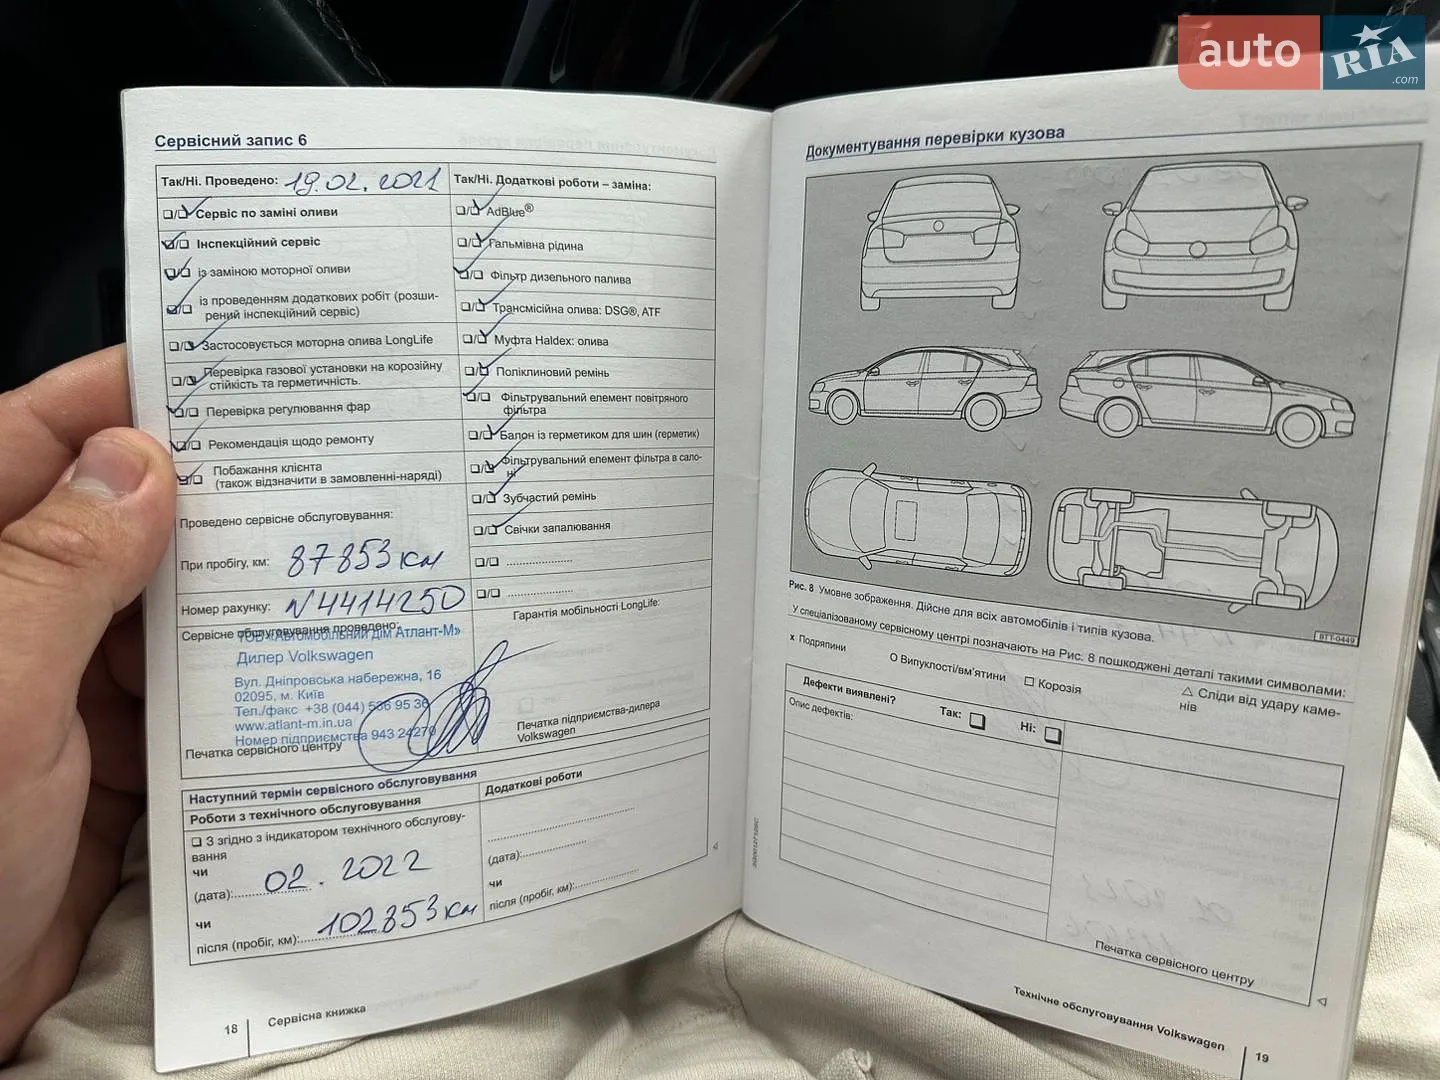 auto RIA.com
Сервісний запис 6
Так/Ні. Проведено: 19.02.2021
Сервіс по заміні оливи
Інспекційний сервіс
із заміною моторної оливи
із проведенням додаткових робіт (розши-
рений інспекційний сервіс)
Застосовується моторна олива LongLife
Перевірка газової установки на корозійну
стійкість та герметичність.
Перевірка регулювання фар
Рекомендація щодо ремонту
Побажання клієнта
(також відзначити в замовленні-наряді)
Проведено сервісне обслуговування:
При пробігу, км: 87853 км
Номер рахунку: N4414250
Сервісне обслуговування проведено:
ТОВ «Автомобільний дім Атлант-М»
Дилер Volkswagen
Вул. Дніпровська набережна, 16
02095, м. Київ
Тел./факс +38 (044) 536 95 36
www.atlant-m.in.ua
Номер підприємства 943 24270
Печатка сервісного центру
Так/Ні. Додаткові роботи – заміна:
AdBlue®
Гальмівна рідина
Фільтр дизельного палива
Трансмісійна олива: DSG®, ATF
Муфта Haldex: олива
Поліклиновий ремінь
Фільтрувальний елемент повітряного
фільтра
Балон із герметиком для шин (герметик)
Фільтрувальний елемент фільтра в сало-
ні
Зубчастий ремінь
Свічки запалювання
Гарантія мобільності LongLife:
Печатка підприємства-дилера
Volkswagen
Наступний термін сервісного обслуговування
Роботи з технічного обслуговування
З згідно з індикатором технічного обслугову-
вання
чи
(дата): 02.2022
чи
після (пробіг, км): 102853 км
Додаткові роботи
(дата):
чи
після (пробіг, км):
18 Сервісна книжка
Документування перевірки кузова
BTT-0449
Рис. 8 Умовне зображення. Дійсне для всіх автомобілів і типів кузова.
У спеціалізованому сервісному центрі позначають на Рис. 8 пошкоджені деталі такими символами:
x Подряпини
O Випуклості/вм'ятини
□ Корозія
△ Сліди від удару каме-
нів
Дефекти виявлені? Так: Ні:
Опис дефектів:
Печатка сервісного центру
Технічне обслуговування Volkswagen 19